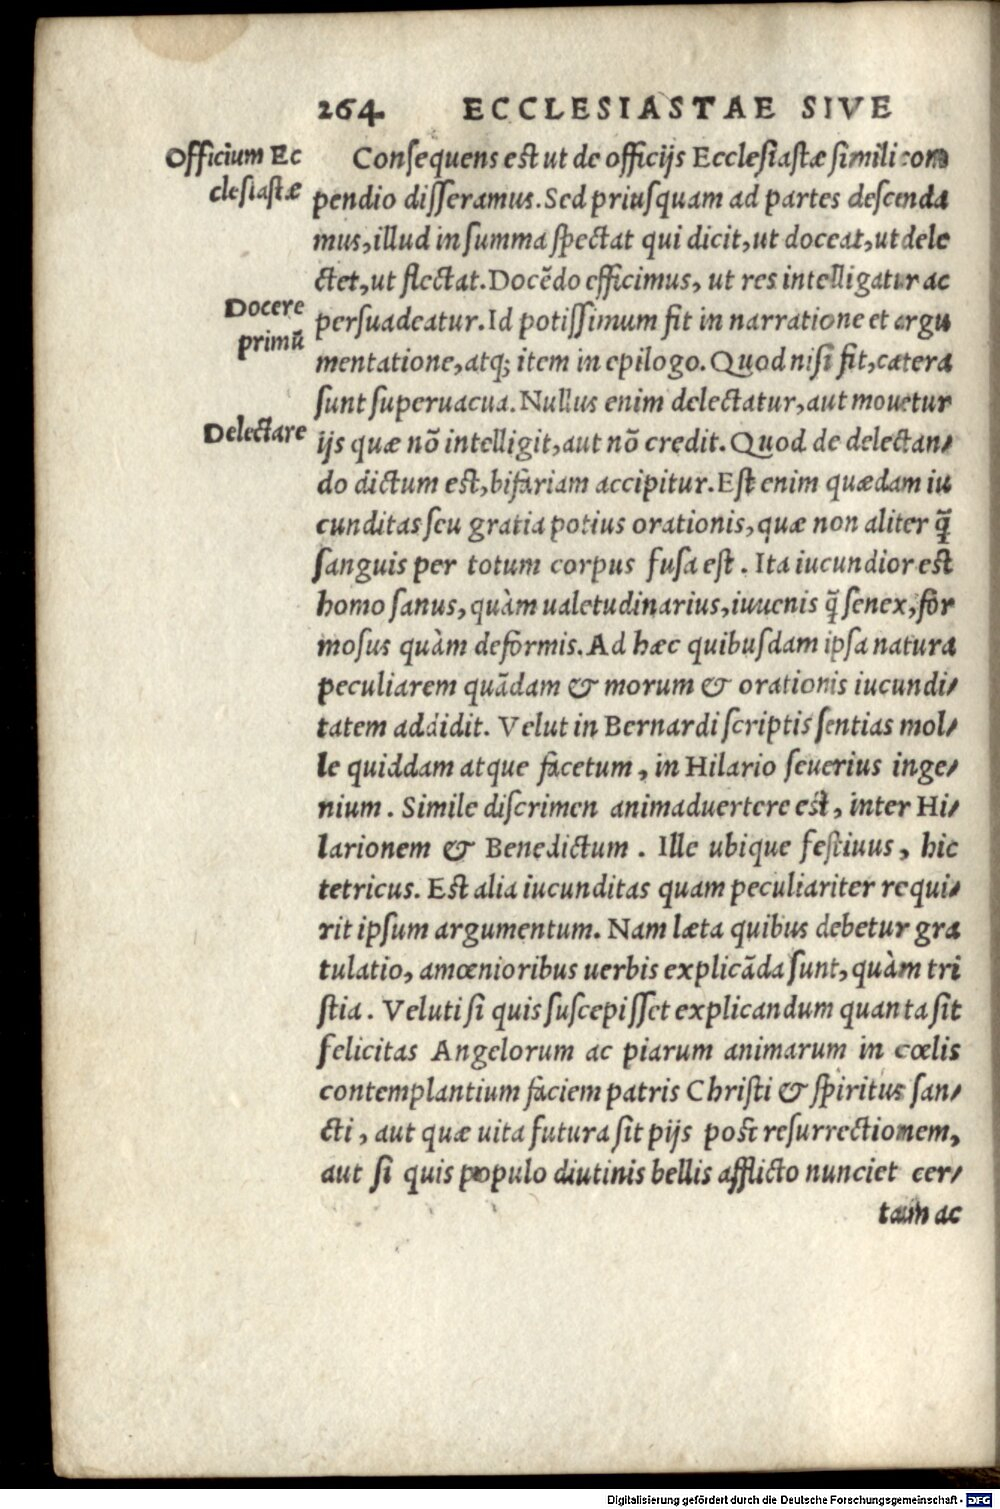 264 ECCLESIASTAE SIVE
Officium Ec
clesiastæ
Consequens est ut de officijs Ecclesiastæ simili com
pendio disseramus. Sed priusquam ad partes descenda
mus, illud in summa spectat qui dicit, ut doceat, ut dele
ctet, ut flectat. Docẽdo efficimus, ut res intelligatur ac
Docere
primũ
persuadeatur. Id potissimum fit in narratione et argu
mentatione, atq; item in epilogo. Quod nisi fit, cætera
sunt superuacua. Nullus enim delectatur, aut mouetur
Delectare
ijs quæ nõ intelligit, aut nõ credit. Quod de delectan-
do dictum est, bifariam accipitur. Est enim quædam iu
cunditas seu gratia potius orationis, quæ non aliter q̃
sanguis per totum corpus fusa est. Ita iucundior est
homo sanus, quàm ualetudinarius, iuuenis q̃ senex, for
mosus quàm deformis. Ad hæc quibusdam ipsa natura
peculiarem quãdam & morum & orationis iucundi-
tatem addidit. Velut in Bernardi scriptis sentias mol-
le quiddam atque facetum, in Hilario seuerius inge-
nium. Simile discrimen animaduertere est, inter Hi-
larionem & Benedictum. Ille ubique festiuus, hic
tetricus. Est alia iucunditas quam peculiariter requi-
rit ipsum argumentum. Nam læta quibus debetur gra
tulatio, amœnioribus uerbis explicãda sunt, quàm tri
stia. Veluti si quis suscepisset explicandum quanta sit
felicitas Angelorum ac piarum animarum in cœlis
contemplantium faciem patris Christi & spiritus san-
cti, aut quæ uita futura sit pijs post resurrectionem,
aut si quis populo diutinis bellis afflicto nunciet cer-
tam ac
Digitalisierung gefördert durch die Deutsche Forschungsgemeinschaft - DFG